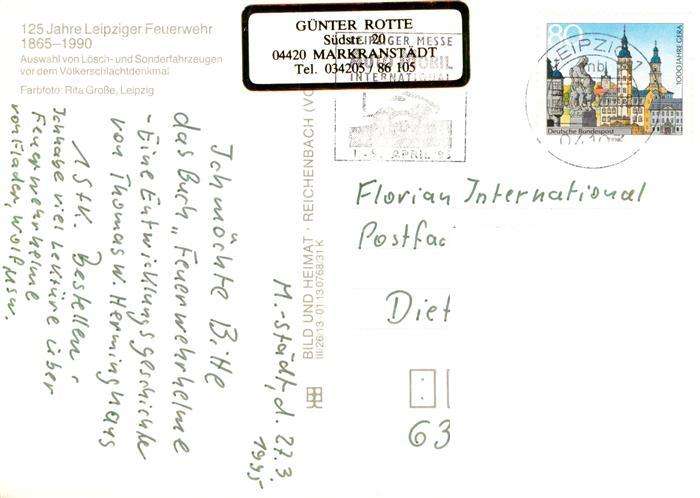 125 Jahre Leipziger Feuerwehr
1865–1990
Auswahl von Lösch- und Sonderfahrzeugen
vor dem Völkerschlachtdenkmal
Farbfoto: Rita Große, Leipzig
GÜNTER ROTTE
Südstr. 20
04420 MARKRANSTÄDT
Tel. 034205 / 86 105
LEIPZIGER MESSE
AUTO MOBIL
INTERNATIONAL
APRIL 95
LEIPZIG
80
1000 JAHRE GERA
Deutsche Bundespost
M.-städt, d. 27.3.
1995
Ich möchte Bitte
das Buch „Feuerwehrhelme
- Eine Entwicklungsgeschichte
von Thomas W. Herminghaus
1 Stk. Bestellen!
Ich habe viel Lektüre über
Feuerwehrhelme
von Flader, Wolf usw.
BILD UND HEIMAT · REICHENBACH (VO
III/26/13 01 13 0768/31 K
Florian International
Postfac
Diet
63